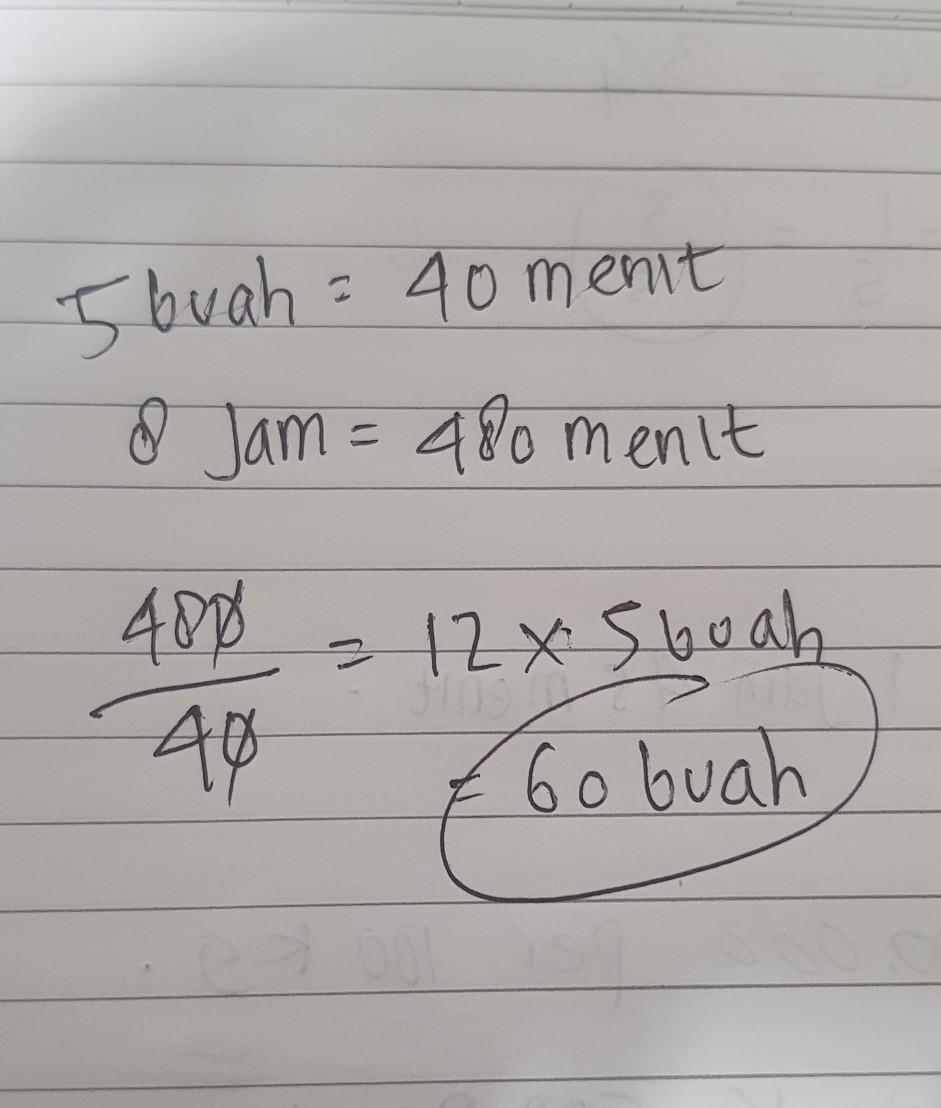 5 buah = 40 menit
8 Jam = 480 menit
480
/
40 = 12 x 5 buah
= 60 buah